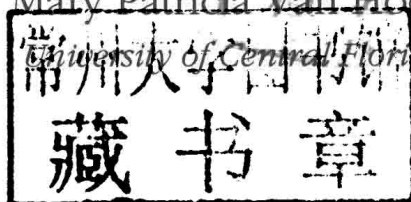 Mary Patricia Van
University of Central Flori
常州大学图书馆
藏书章